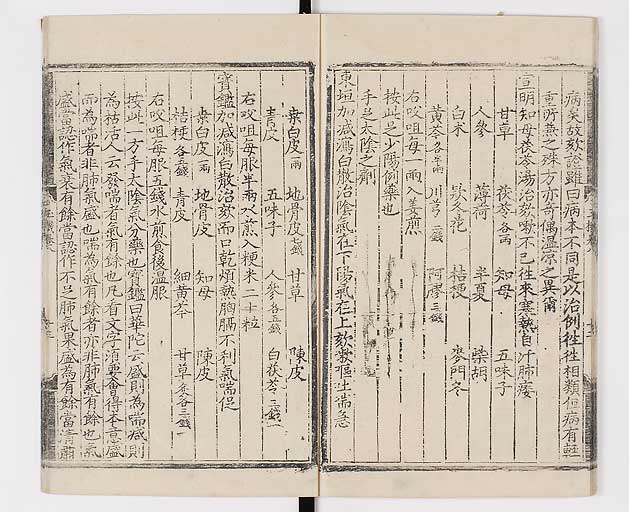 病矣故欬證雖曰病本不同是以治例徃徃相類但病有輕
重所無之殊方亦奇偶溫凉之異爾
宣明知母茯苓湯治欬嗽不已徃來寒熱自汗肺痿
甘草 茯苓各一兩 知母 五味子
人參 薄荷 半夏 柴胡
白朮 欵冬花 桔梗 麥門冬
黃芩各半兩 川芎二錢 阿膠三錢
右㕮咀每一兩入姜煎
按此足少陽例藥也
手足太陰之劑
東垣加減瀉白散治陰氣在下陽氣在上欬嗽嘔吐喘急
桑白皮一兩 地骨皮七錢 甘草 陳皮
青皮 五味子 人參各五錢 白茯苓三錢
右㕮咀每服半兩水煎入粳米二十粒
寶鑑加減瀉白散治欬而口乾煩熱胸膈不利氣喘促
桑白皮一兩 地骨皮 知母 陳皮
桔梗各五錢 青皮 細黃芩 甘草炙各三錢
右㕮咀每服五錢水煎食後溫服
按此一方手太陰氣分藥也寶鑑曰華陀云盛則為喘减則
為枯活人云發喘者氣有餘也凡看文字湏要會得本意盛
而為喘者非肺氣盛也喘為氣有餘者亦非肺氣有餘也氣
盛當認作氣衰有餘當認作不足肺氣果盛為有餘當清肅